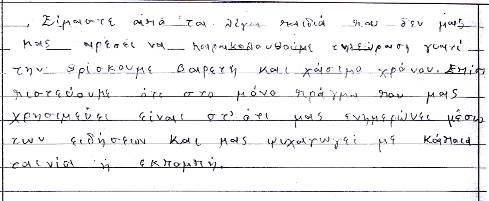 Είμαστε από τα λίγα παιδιά που δεν μας
μας αρέσει να παρακολουθούμε τηλεόραση γιατί
την βρίσκουμε βαρετή και χάσιμο χρόνου. Επίσ
πιστεύουμε ότι στο μόνο πράγμα που μας
χρησιμεύει είναι στ' ότι μας ενημερώνει μέσω
των ειδήσεων και μας ψυχαγωγεί με κάποια
ταινία ή εκπομπή.